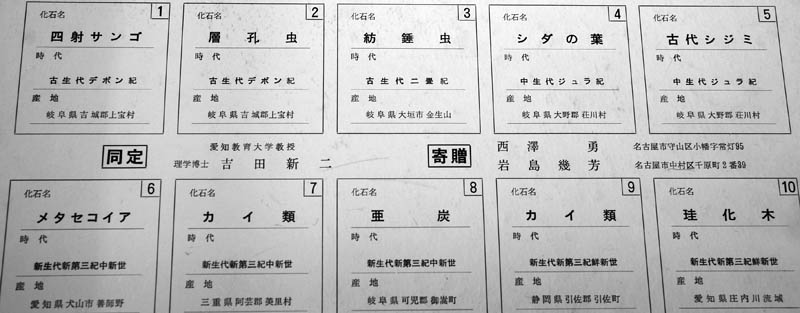 1
化石名
四射サンゴ
時代
古生代デボン紀
産地
岐阜県吉城郡上宝村
2
化石名
層孔虫
時代
古生代デボン紀
産地
岐阜県吉城郡上宝村
3
化石名
紡錘虫
時代
古生代二畳紀
産地
岐阜県大垣市金生山
4
化石名
シダの葉
時代
中生代ジュラ紀
産地
岐阜県大野郡荘川村
5
化石名
古代シジミ
時代
中生代ジュラ紀
産地
岐阜県大野郡荘川村
同定
愛知教育大学教授
理学博士 吉田新二
寄贈
西澤勇 名古屋市守山区小幡字常灯95
岩島幾芳 名古屋市中村区千原町2番39
6
化石名
メタセコイア
時代
新生代新第三紀中新世
産地
愛知県犬山市善師野
7
化石名
カイ類
時代
新生代新第三紀中新世
産地
三重県阿芸郡美里村
8
化石名
亜炭
時代
新生代新第三紀中新世
産地
岐阜県可児郡御嵩町
9
化石名
カイ類
時代
新生代新第三紀鮮新世
産地
静岡県引佐郡引佐町
10
化石名
珪化木
時代
新生代新第三紀鮮新世
産地
愛知県庄内川流域